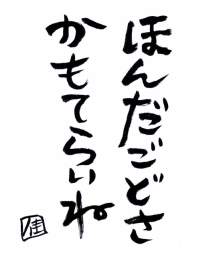 ほんだごどさ
かもてらいね
佳